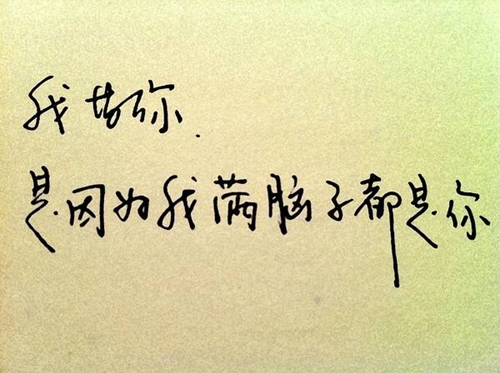 我
你
是因为我满脑子都是你